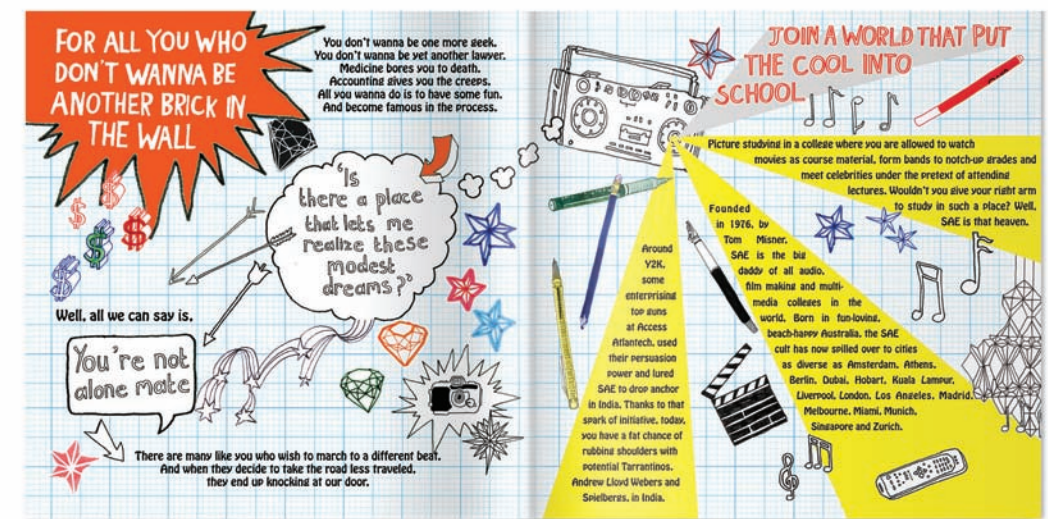 FOR ALL YOU WHO
DON'T WANNA BE
ANOTHER BRICK IN
THE WALL
You don't wanna be one more geek.
You don't wanna be yet another lawyer.
Medicine bores you to death.
Accounting gives you the creeps.
All you wanna do is to have some fun.
And become famous in the process.
'Is
there a place
that lets me
realize these
modest
dreams?'
Well, all we can say is,
You're not
alone mate
There are many like you who wish to march to a different beat.
And when they decide to take the road less traveled,
they end up knocking at our door.
JOIN A WORLD THAT PUT
THE COOL INTO
SCHOOL
Picture studying in a college where you are allowed to watch
movies as course material, form bands to notch-up grades and
meet celebrities under the pretext of attending
lectures. Wouldn't you give your right arm
to study in such a place? Well,
SAE is that heaven.
Founded
in 1976, by
Tom Misner,
SAE is the big
daddy of all audio,
film making and multi-
media colleges in the
world. Born in fun-loving,
beach-happy Australia, the SAE
cult has now spilled over to cities
as diverse as Amsterdam, Athens,
Berlin, Dubai, Hobart, Kuala Lampur,
Liverpool, London, Los Angeles, Madrid,
Melbourne, Miami, Munich,
Singapore and Zurich.
Around
Y2K,
some
enterprising
top guns
at Access
Atlantech, used
their persuasion
power and lured
SAE to drop anchor
in India. Thanks to that
spark of initiative, today,
you have a fat chance of
rubbing shoulders with
potential Tarrantinos,
Andrew Lloyd Webers and
Spielbergs, in India.